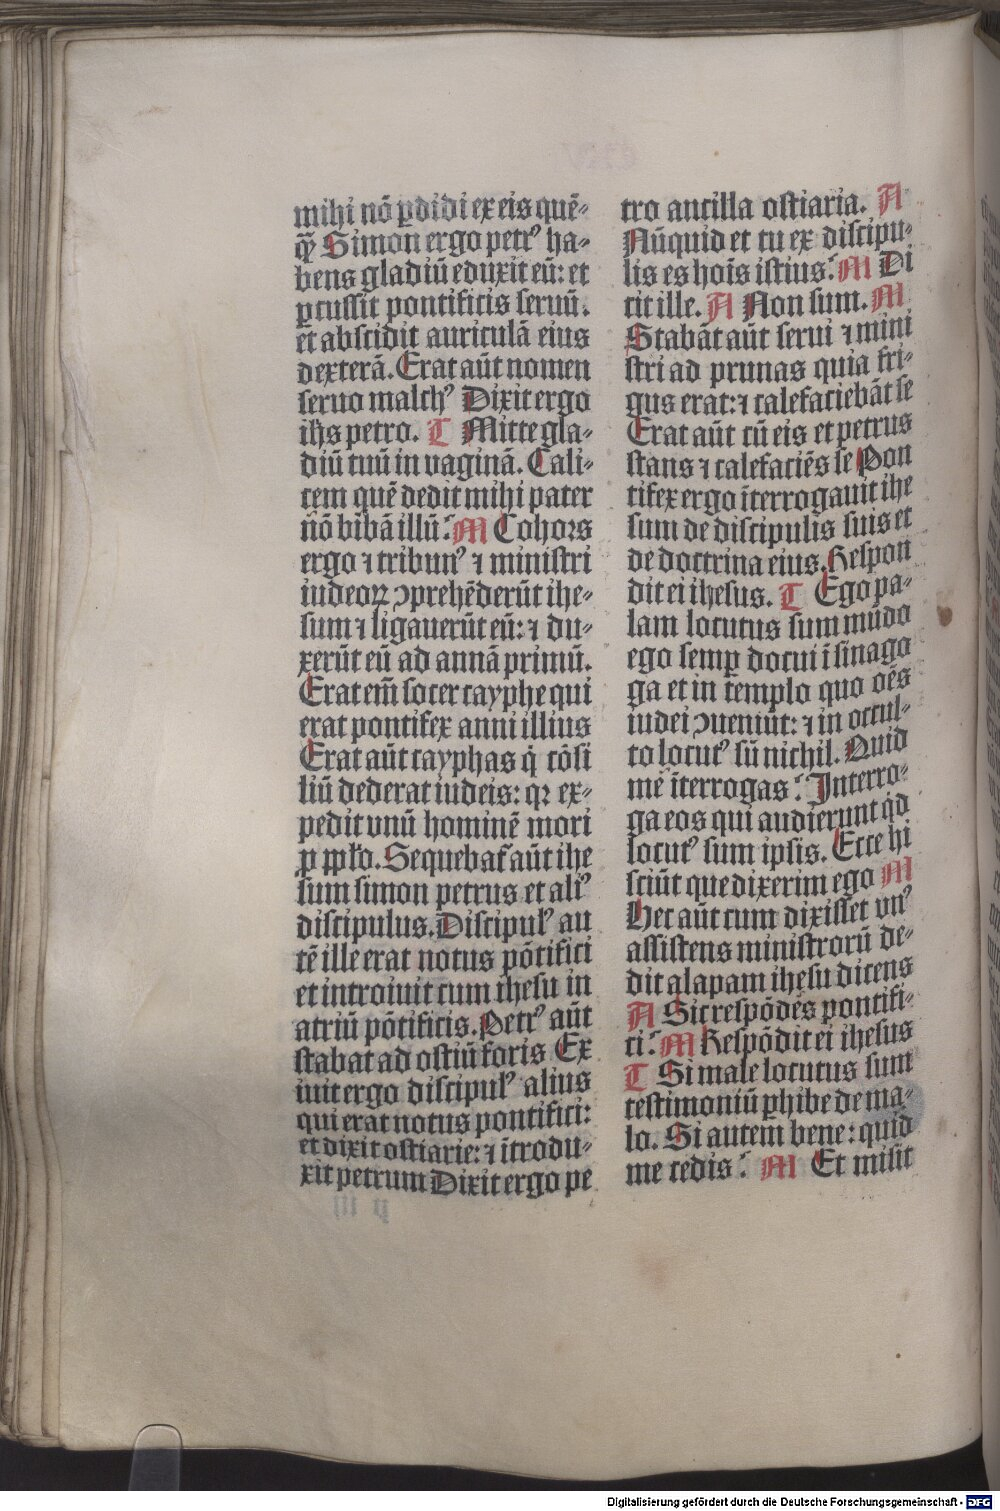 mihi nō ꝑdidi ex eis quē-
q̄ꝫ Simon ergo petrꝰ ha-
bens gladiū eduxit eū: et
ꝑcussit pontificis seruū.
et abscidit auriculā eius
dexterā. Erat aūt nomen
seruo malchꝰ Dixit ergo
ihs petro. C Mitte gla-
diū tuū in vaginā. Cali-
cem quē dedit mihi pater
nō bibā illū? M Cohors
ergo ⁊ tribunꝰ ⁊ ministri
iudeoꝝ ꝯprehēderūt ihe-
sum ⁊ ligauerūt eū: ⁊ du-
xerūt eū ad annā primū.
Erat em̄ socer cayphe qui
erat pontifex anni illius
Erat aūt cayphas q̇ cōsi
liū dederat iudeis: qꝛ ex-
pedit vnū hominē mori
ꝓ ppl̄o. Sequebat᷑ aūt ihe
sum simon petrus et aliꝰ
discipulus. Discipulꝰ au
tē ille erat notus pōtifici
et introiuit cum ihesu in
atriū pōtificis. Petrꝰ aūt
stabat ad ostiū foris Ex
iuit ergo discipulꝰ alius
qui erat notus pontifici:
et dixit ostiarie: ⁊ ītrodu-
xit petrum Dixit ergo pe
tro ancilla ostiaria. A
Nūquid et tu ex discipu-
lis es hoīs istius? M Di
cit ille. A Non sum. M
Stabāt aūt serui ⁊ mini
stri ad prunas quia fri-
gus erat: ⁊ calefaciebāt se
Erat aūt cū eis et petrus
stans ⁊ calefaciēs se Pon
tifex ergo īterrogauit ihe
sum de discipulis suis et
de doctrina eius. Respon
dit ei ihesus. C Ego pa-
lam locutus sum mūdo
ego semꝑ docui ī sinago
ga et in templo quo oēs
iudei ꝯueniūt: ⁊ in occul-
to locutꝰ sū nichil. Quid
me īterrogas? Interro-
ga eos qui audierunt qd̓
locutꝰ sum ipsis. Ecce hi
sciūt que dixerim ego M
Hec aūt cum dixisset vnꝰ
assistens ministrorū de-
dit alapam ihesu dicens
A Sic respōdes pontifi-
ci? M Respōdit ei ihesus
C Si male locutus sum
testimoniū ꝑhibe de ma-
lo. Si autem bene: quid
me cedis? M Et misit
Digitalisierung gefördert durch die Deutsche Forschungsgemeinschaft - DFG